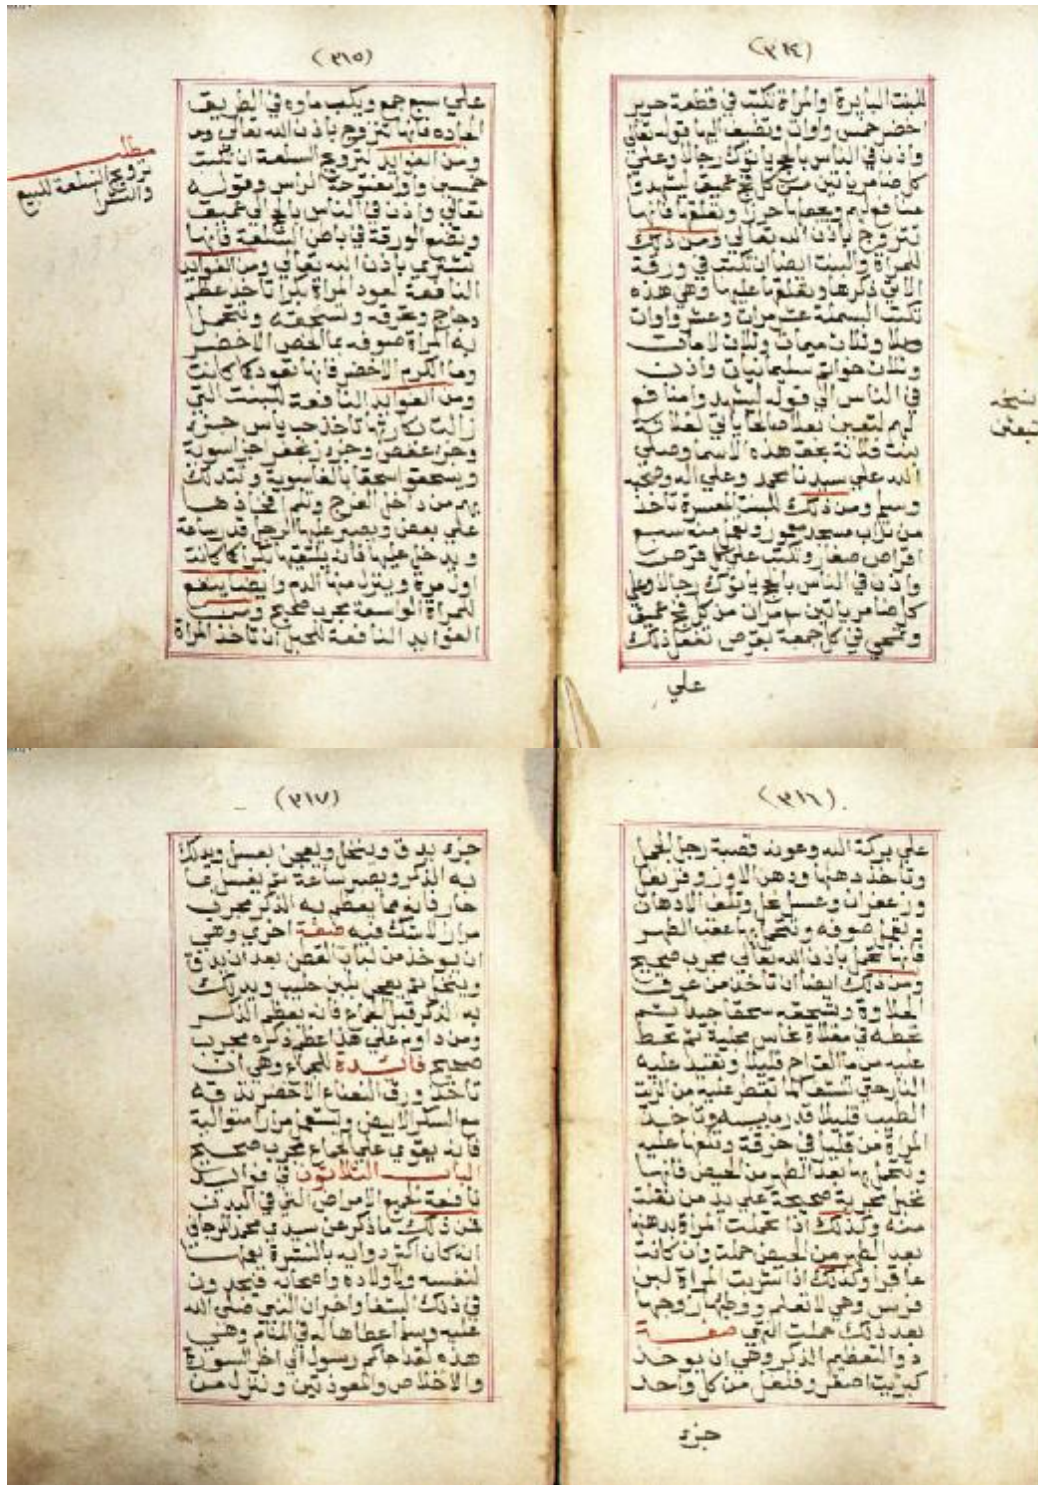 (٣١٤)
للبنت البايرة والمراة تكتب في قطعة حرير
اخضر خمس واوات وتضيف اليها قوله تعالى
واذن في الناس بالحج ياتوك رجالا وعلى
كل ضامر ياتين من كل فج عميق ليشهدوا
منافع لهم ويعمل حرزا وتعلقها فانها
تتزوج باذن الله تعالى ومن ذلك
للمراة والبنت ايضا ان تكتب في ورقة
الاتي ذكرها وتعلقها عليها وهي هذه
تكتب البسملة عشر مرات وعشر واوات
وثلاث ميمات وثلاث لامات
وثلاث خواتم سليمانيات واذن
في الناس الى قوله ليشهدوا منافع
لهم بعلا صالحا ياتي لفلانة
بنت فلانة بحق هذه الاسما وصلى
الله على سيدنا محمد وعلى اله وصحبه
وسلم ومن ذلك للبنت المعسرة تاخذ
من تراب مسجد مهجور وتعمل منه سبع
اقراص صغار وتكتب على كل قرص
واذن في الناس بالحج ياتوك رجالا وعلى
كل ضامر ياتين من كل فج عميق
وتمحي في كل جمعة بقرص تفعل ذلك
علي
(٣١٥)
علي سبع جمع ويكب ماوه في الطريق
الجاده فانها تتزوج باذن الله تعالى
ومن الفوايد لترويج السلعة ان تكتب
خمسين واوا مفتوحة الراس وقوله
تعالى واذن في الناس بالحج الى عميق
وتضع الورقة في السلعة فانها
تشترى باذن الله تعالى ومن الفوايد
النافعة لعود المراة بكرا تاخذ عظم
دجاج وتحرقه وتسحقه وتتحمل
به المراة صوفه بما العفص الاخضر
وما الكرم الاخضر فانها تعود كما كانت
ومن الفوايد النافعة للبنت التي
زالت بكارتها تاخذ حب ياس جزء
وجزء عفص وجزء زنجفر
ويسحقوا سحقا بالسوية وتتدلك
بهم من داخل الفرج وتضم افخاذها
على بعض ويصبر عليها الرجل قدر ساعة
ويدخل عليها فانه يلتقيها بكرا كما كانت
اول مرة وينزل منها الدم وايضا ينفع
للمراة الواسعة مجرب صحيح ومن
الفوايد النافعة للحبل ان تاخذ المراة
مطلب
ترويج السلعة للبيع
والشرا
(٣١٦)
على بركة الله وعونه قصبة رجل الجمل
وتاخذ دهنها ودهن الاوز
وزعفران وعسل نحل وتلف الادهان
وتعمل صوفه وتتحمل بها عقب الطهر
فانها تحمل باذن الله تعالى مجرب صحيح
ومن ذلك ايضا ان تاخذ من عرق
الحلاوة وتسحقه سحقا جيدا ثم
تحطه في مقلاة نحاس محلية ثم تحط
عليه من ما القراح قليلا وتقيد عليه
النار حتى كلما نقص عليه من الزيت
الطيب قليلا قدر وتاخذ
المراة من قليها في خرقة وتلفها عليه
وتتحمل بها بعد الطهر من الحيض فانها
تحبل مجربة صحيحة على يد من نقلت
منه وكذلك اذا تحملت المراة بدهن
بعد الطهر من الحيض حملت وان كانت
عاقرا وكذلك اذا شربت المراة لبن
فرس وهي لا تعلم ووطيها زوجها
بعد ذلك حملت انتهى صفة
دوا لتعظيم الذكر وهي ان يوخذ
كبريت اصفر وفلفل من كل واحد
جزء
(٣١٧)
جزء يدق وينخل ويعجن بعسل ويدلك
به الذكر ويصبر ساعة ثم يغسل بما
حار فانه مما يعظم به الذكر مجرب
مرارا لا شك فيه صفة اخرى وهي
ان يوخذ من لباب القطن بعد ان يدق
وينخل ثم يعجن بلبن حليب ويدلك
به الذكر قبل الجماع فانه يعظم الذكر
ومن داوم على هذا عظم ذكره مجرب
صحيح فائدة للجماع وهي ان
تاخذ ورق النعناع الاخضر تدقه
مع السكر الابيض وتستعمل مرارا متوالية
فانه يقوي على الجماع مجرب صحيح
الباب الثلاثون في فوايد
نافعة لجميع الامراض التي في البدن
فمن ذلك ما ذكر عن سيدي محمد المرجاني
انه كان اكثر دوايه بالنشرة يعملها
لنفسه ولاولاده واصحابه فيجدون
في ذلك الشفا واخبر ان النبي صلى الله
عليه وسلم اعطاها له في المنام وهي
هذه لقد جاكم رسول الى اخر السورة
والاخلاص والمعوذتين وننزل من